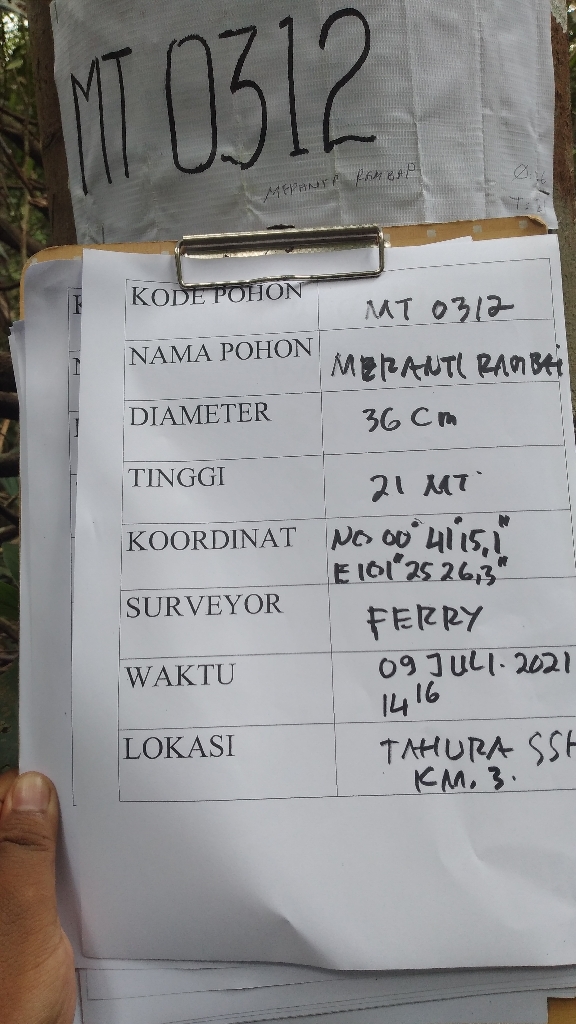 MT 0312
MERANTI RAMBAI
KODE POHON MT 0312
NAMA POHON MERANTI RAMBAI
DIAMETER 36 Cm
TINGGI 21 MT
KOORDINAT N00 00° 41' 15,1"
E 101° 25 26,3"
SURVEYOR FERRY
WAKTU 09 JULI. 2021
14 16
LOKASI TAHURA SSH
KM. 3.